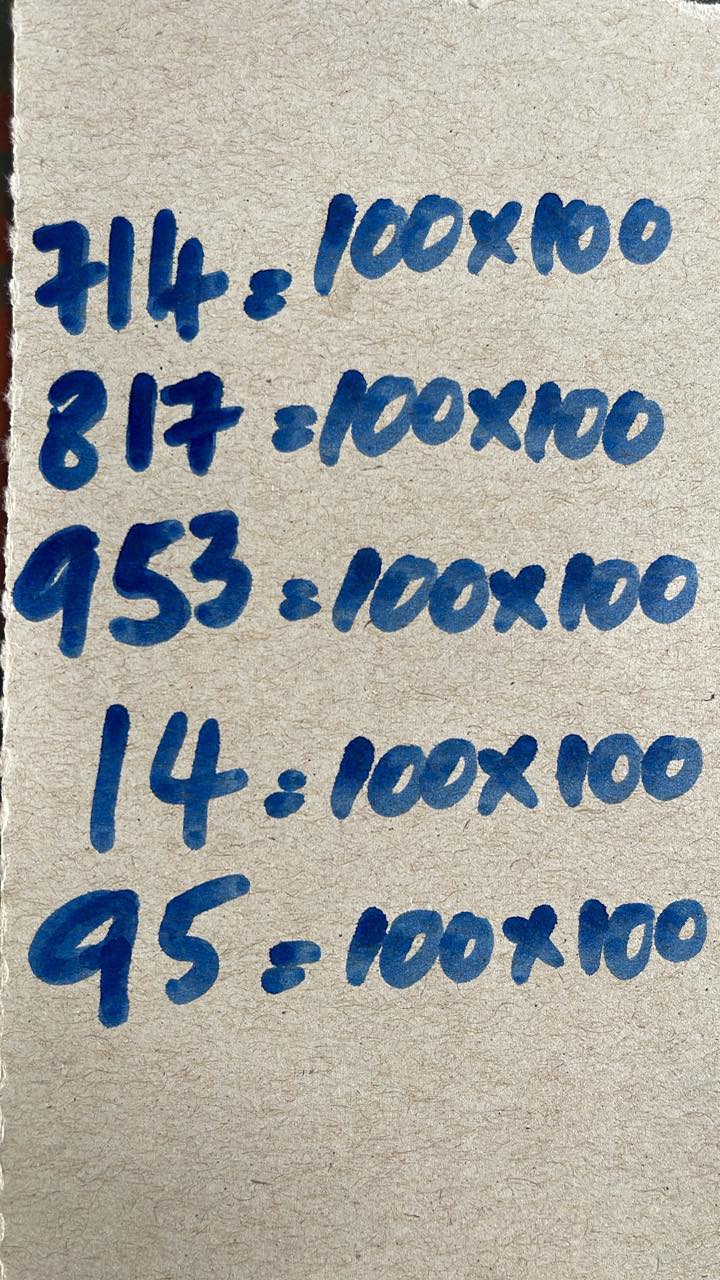 714=100x100
817=100x100
953=100x100
14=100x100
95=100x100